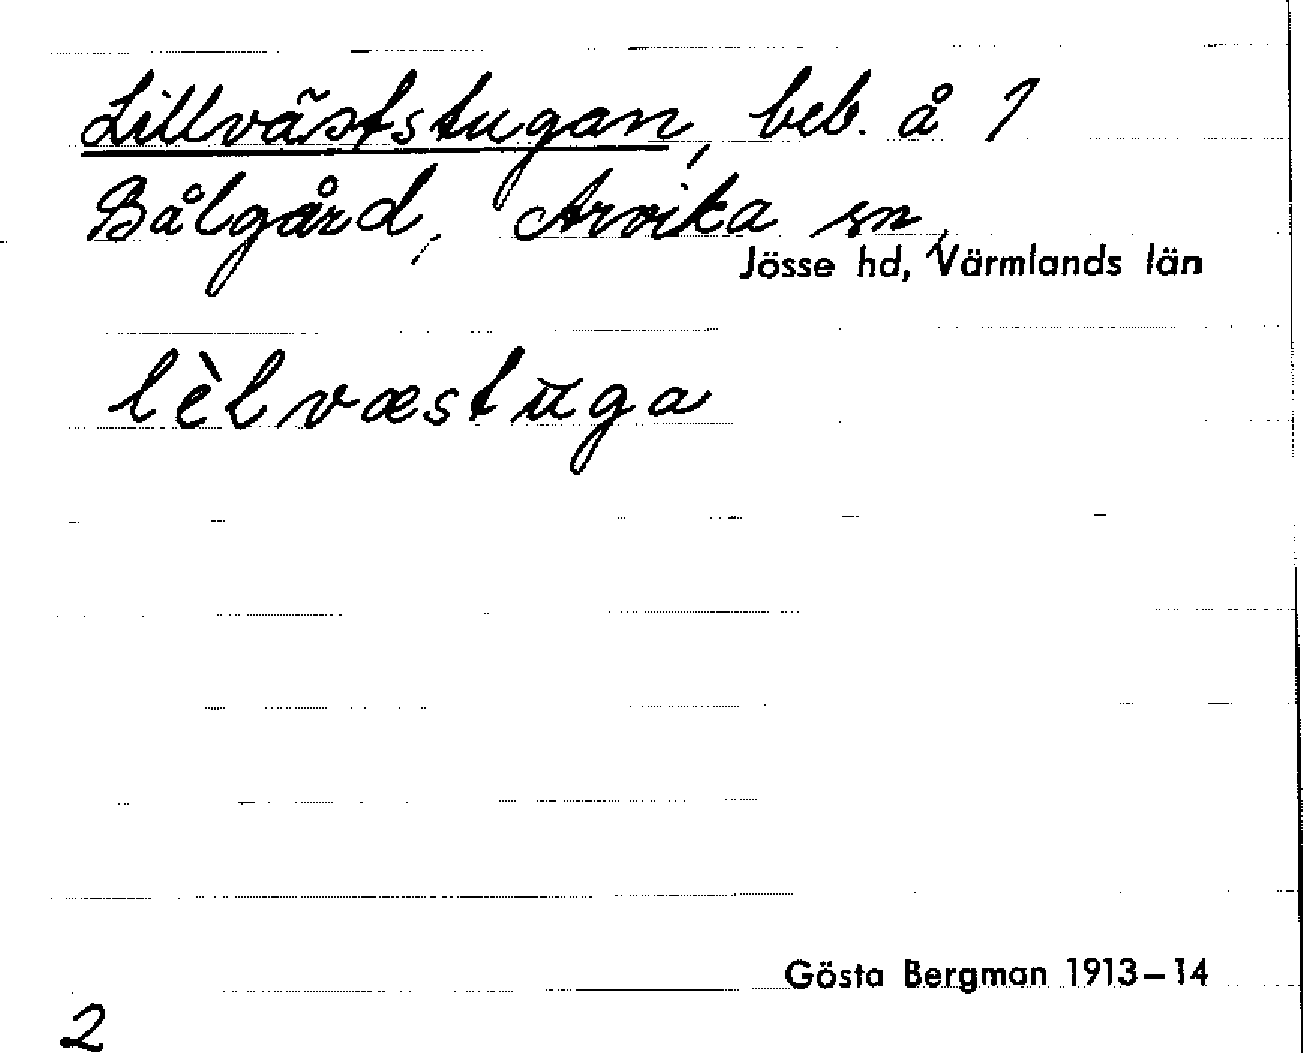 Lillväststugan, beb. å 1
Bålgård, Arvika sn,
Jösse hd, Värmlands län
lèlvæstūga
Gösta Bergman 1913–14
2